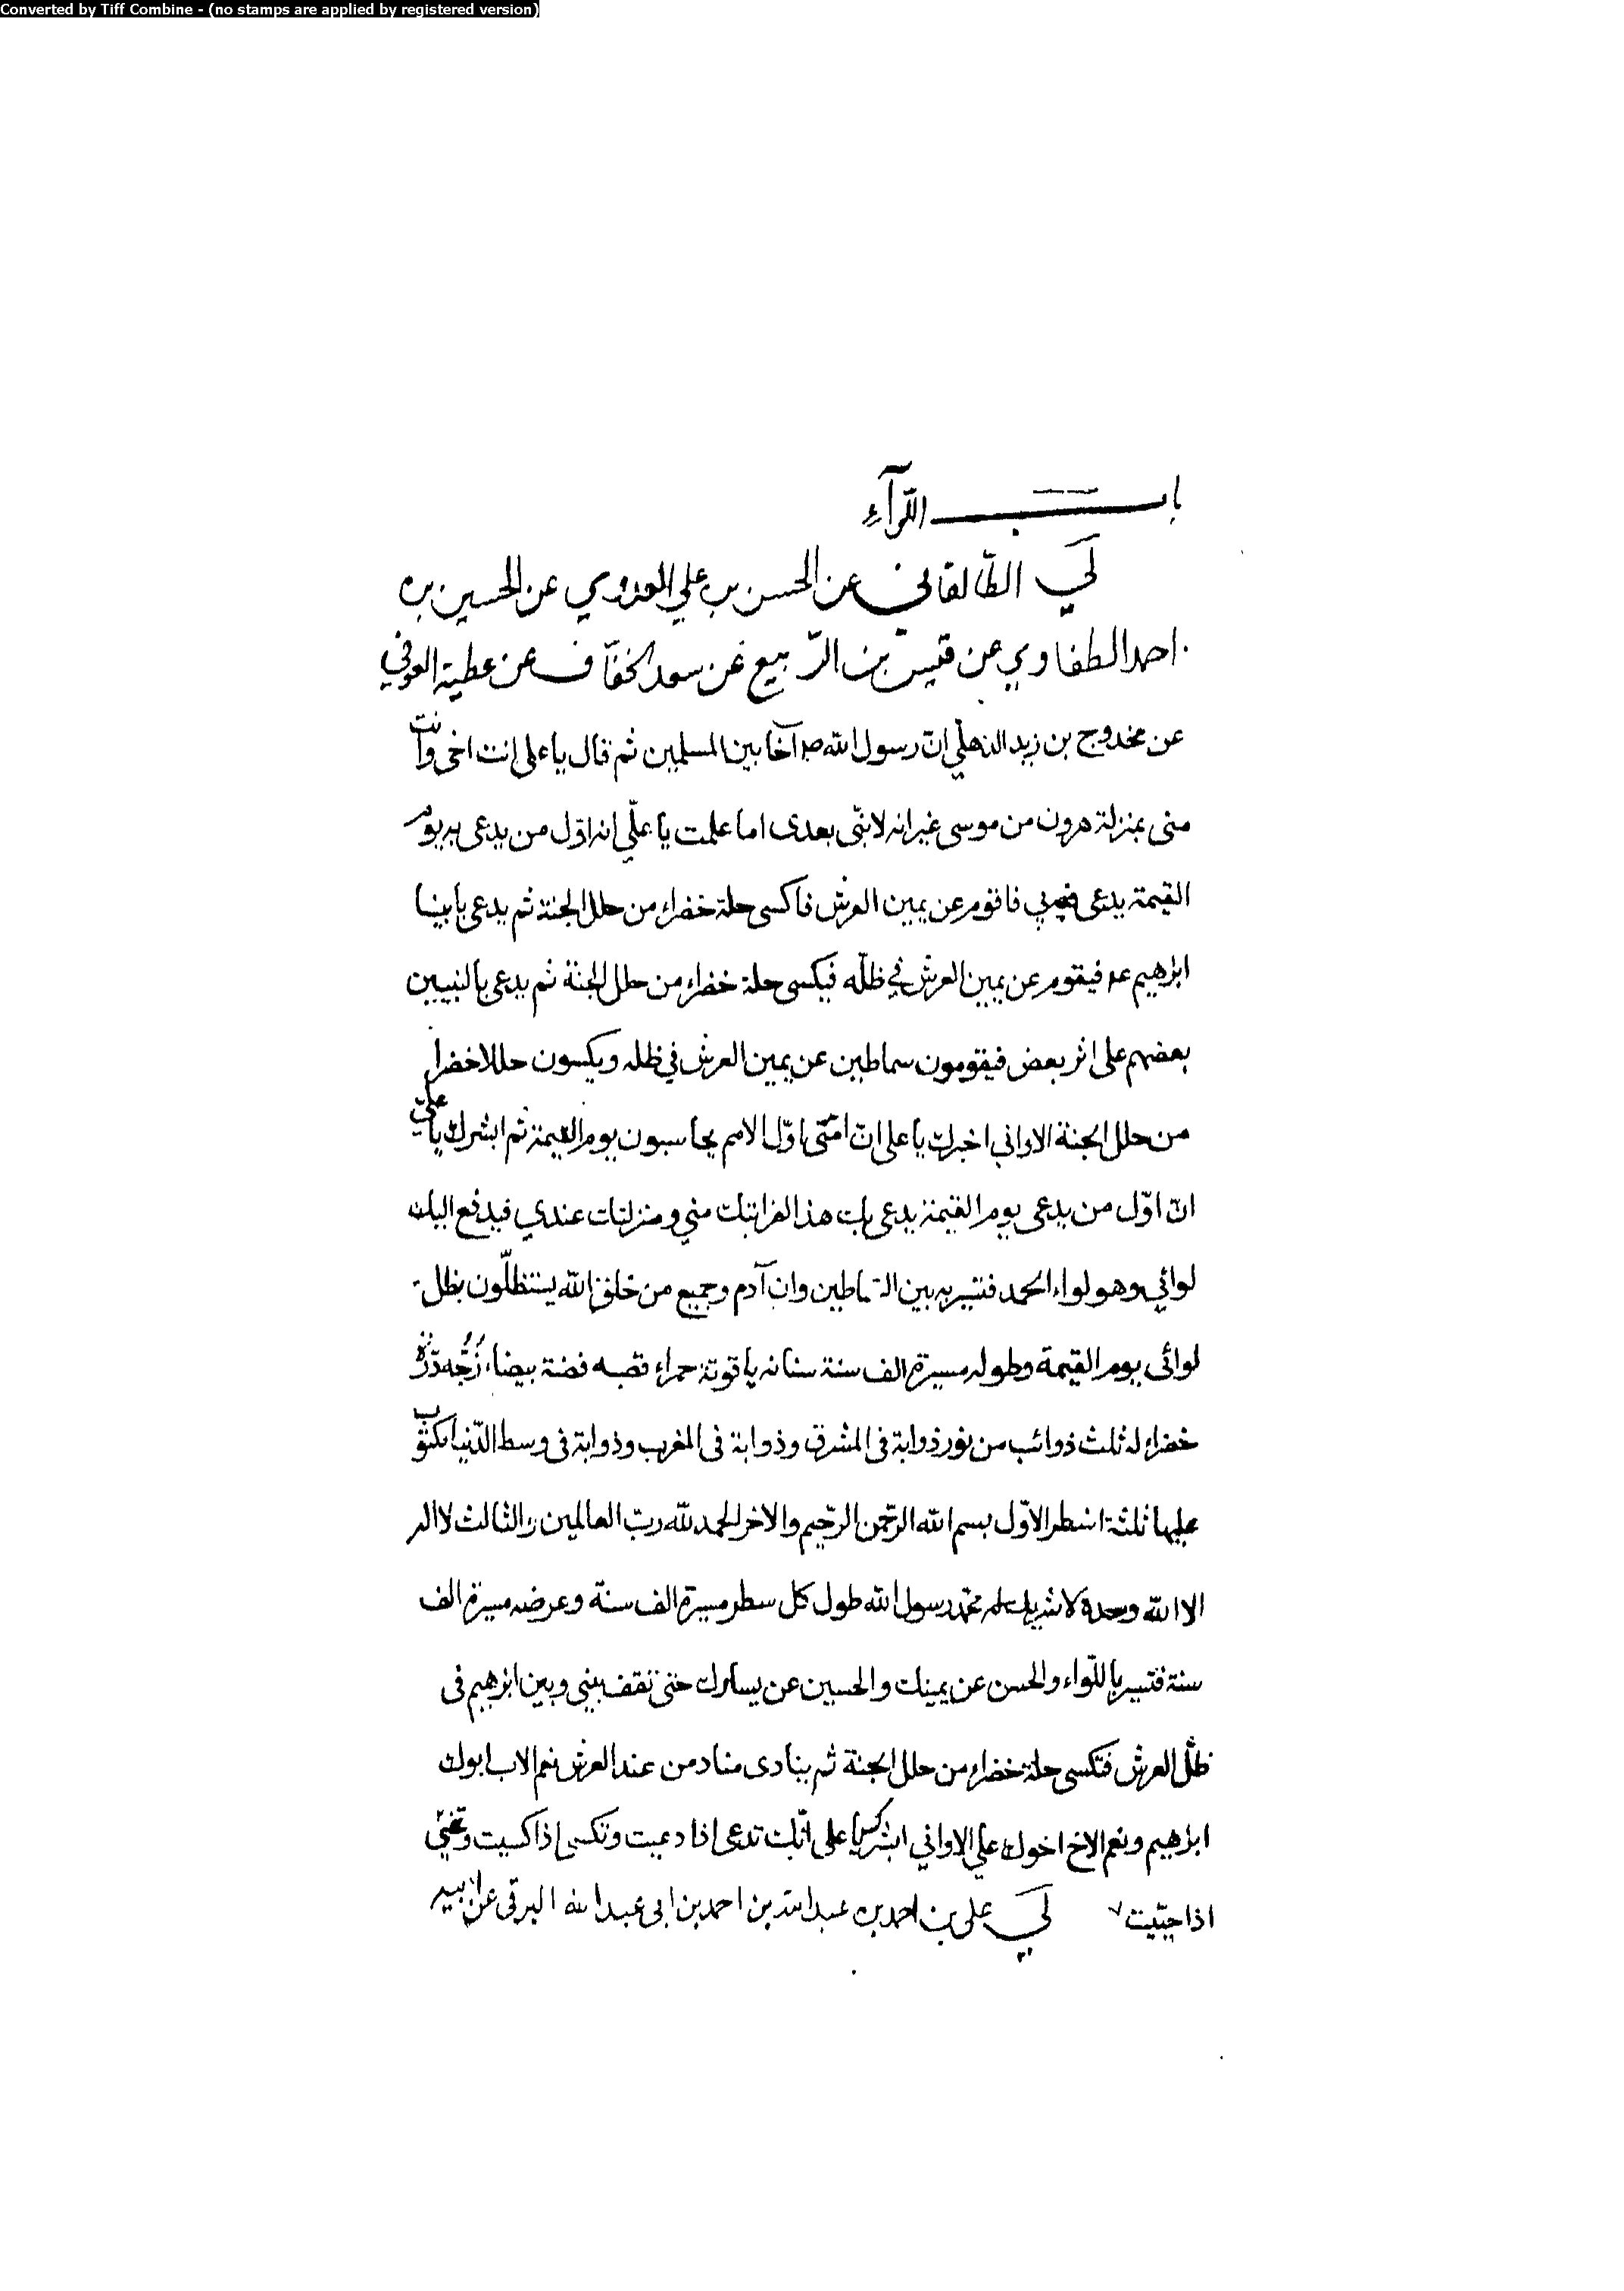 Converted by Tiff Combine - (no stamps are applied by registered version)
باب اللوآء
لي الطالقاني عن الحسن بن علي العدوي عن الحسين بن
احمد الطفاوي عن قيس بن الرّبيع عن سعد الخفّاف عن عطية العوفي
عن مخدوج بن زيد الذهلي انّ رسول الله ص آخا بين المسلمين ثم قال يا على انت اخى وانت
منى بمنزلة هرون من موسى غير انه لا نبّى بعدى اما علمت يا علّي انه اوّل من يدعى به يوم
القيمة يدعى بي فاقوم عن يمين العرش فاكسى حلة خضراء من حلل الجنة ثم يدعى بابينا
ابرهيم عم فيقوم عن يمين العرش في ظلّه فيكسى حلة خضراء من حلل الجنة ثم يدعى بالنبيين
بعضهم على اثر بعض فيقومون سماطين عن يمين العرش في ظله ويكسون حللا خضرا
من حلل الجنة الا واني اخبرك يا على انّ امّتى اوّل الامم يحاسبون يوم القيمة ثم ابشرك يا عليّ
انّ اوّل من يدعى يوم القيمة يدعى بك هذا لقرابتك مني ومنزلتك عندي فيدفع اليك
لوائي وهو لواء الحمد فتسير به بين السّماطين وان آدم وجميع من خلق الله يستظلّون بظل
لوائى يوم القيمة وطوله مسيرة الف سنة سنانه ياقوتة حمراء قصبه فضة بيضاء زُجّه درّة
خضراء له ثلث ذوائب من نور ذوابة فى المشرق وذوابة فى المغرب وذوابة فى وسط الدّنيا مكتوب
عليها ثلثة اسطر الاوّل بسم الله الرّحمن الرّحيم والاخر الحمد لله ربّ العالمين والثالث لا اله
الا الله وحده لا شريك له محمّد رسول الله طول كل سطر مسيرة الف سنة وعرضه مسيرة الف
سنة فتسير باللّواء والحسن عن يمينك والحسين عن يسارك حتى تقف بيني وبين ابرهيم فى
ظلّ العرش فتكسى حلة خضراء من حلل الجنة ثم ينادى مناد من عند العرش نعم الاب ابوك
ابرهيم ونعم الاخ اخوك علي الا واني ابشرك يا على انّك تدعى اذا دعيت وتكسى اذا كسيت وتحيّى
اذا حيّيت لي على بن احمد بن عبد الله بن احمد بن ابى عبد الله البرقى عن ابيه